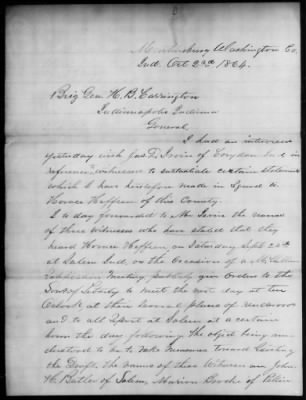 Washington Co.
Ind. Oct 2nd 1864.
Brig Gen. H. B. Carrington
Indianapolis Indiana
General
I had an interview
yesterday with Jas. D. Irvin of Corydon Ind in
reference witnesses to certain statements
which I have heretofore made in regard to
Horace Heffren of this County.
I to day forwarded to Mr Irvin the names
of three Witnesses who have stated that they
heard Horace Heffren, on Saturday Sept 24th
at Salem Ind, on the Occasion of a McClellan
Meeting publicly give Orders to the
Sons of Liberty to meet the next day at ten
Oclock at their several places of rendezvous
and to all report at Salem at a certain
hour the day following. The object being un-
derstood to be to take measures toward resisting
the Draft. The names of these Witnesses are John
H. Butler of Salem, Marion Booth of